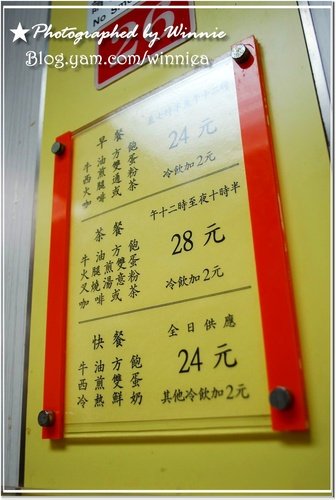 ★Photographed by Winnie
Blog.yam.com/winniea
26
早餐
牛油方飽
西煎雙蛋
火腿通粉
咖啡或茶
24元
冷飲加2元
茶餐
牛油方飽
火腿煎雙蛋
叉燒湯意粉
咖啡或茶
午十二時至夜十時半
28元
冷飲加2元
快餐
牛油方飽
西煎雙蛋
冷熱鮮奶
全日供應
24元
其他冷飲加2元